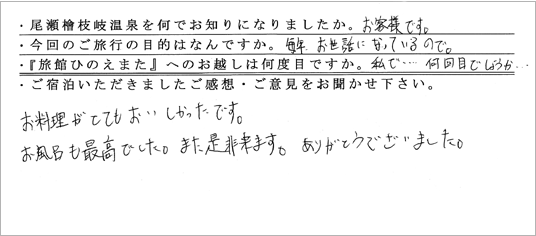 ・尾瀬檜枝岐温泉を何でお知りになりましたか。お客様です。
・今回のご旅行の目的はなんですか。毎年 お世話になっているので。
・『旅館ひのえまた』へのお越しは何度目ですか。私で… 何回目でしょうか…
・ご宿泊いただきましたご感想・ご意見をお聞かせ下さい。
お料理がとてもおいしかったです。
お風呂も最高でした。また是非来ます。ありがとうございました。